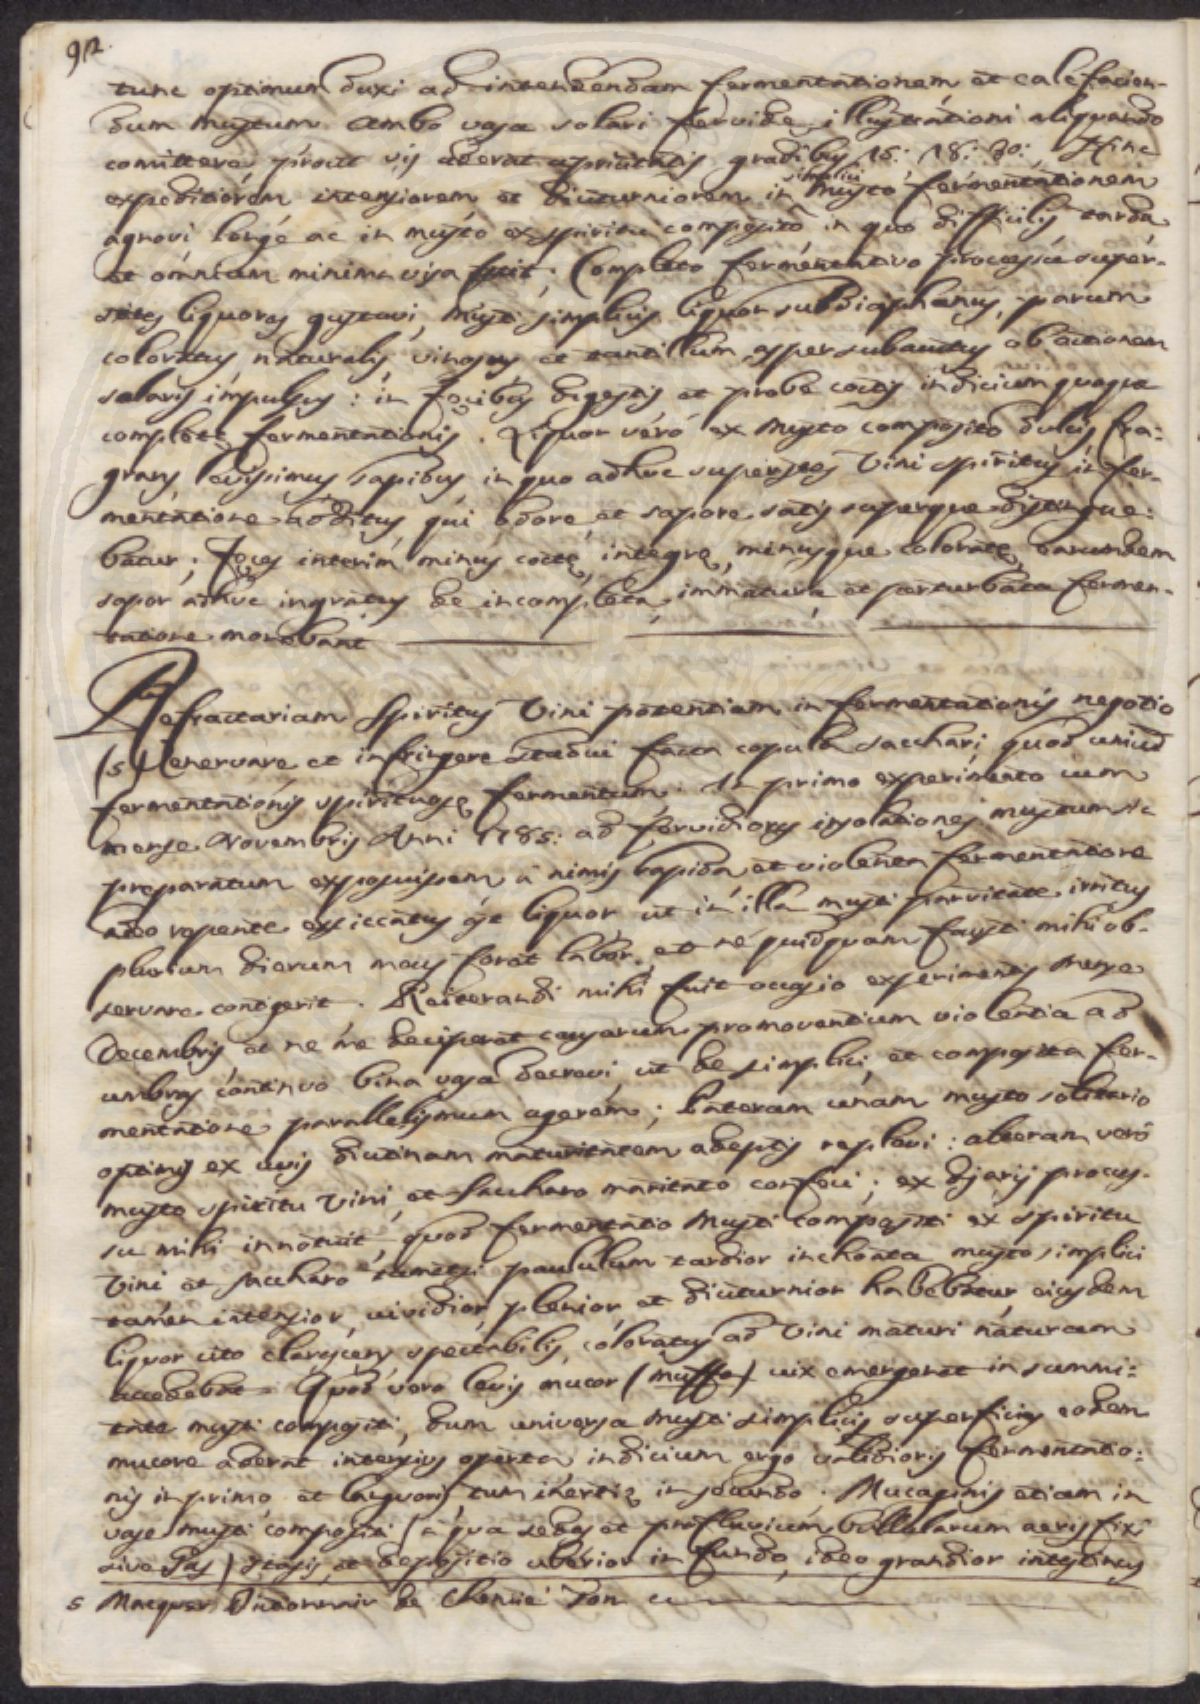 92.
tunc optimum duxi ad intendendam fermentationem et calefacien-
dum mustum ambo vasa solari fervidę illustrationi aliquando
comittere, prout vis aderat apricitatis gradibus 16: 18: 20: Hinc
expeditiorem intensiorem et diuturniorem in simplici musto fermentationem
agnovi longé ac in musto ex spiritu composito in quo difficilis tarda
et omnium minima visa fuit; Completo fermentativo processu super-
stites liquores gustavi, musti simplicis liquor subdiaphanus, parum
coloratus, naturalis, vinosus, et tantillum asper ob actionem
solaris impulsus: in fęcibus digestis et probe coctis indicium quoque
completę fermentationis. Liquor veró ex musto composito dulcis fra-
grans levissimus sapidus in quo adhuc superstes Vini spiritus in fer-
mentatione additus, qui odore, et sapore satis superque distingue-
batur; Fęces interim minus coctę, integrę, minusque coloratę, earumdem
sapor adhuc ingratus de incompleta, immatura, et perturbata fermen-
tatione monebant
Refractariam Spiritus Vini potentiam in fermentationis negotio
(s) enervare et infringere studui facta copula sacchari, quod
fermentationis spirituosę fermentum. In primo experimento cum
mense Novembris Anni 1785: ad fervidiores insolationes mustum sic
preparatum exposuissem, a nimis rapida et violenta fermentatione
adeo repente exsiccatus est liquor ut in illa musti parvitate irritus
plurium dierum meus foret labor, et ne quidquam fausti mihi ob-
servare contigerit. Reiterandi mihi fuit occasio experimentis Mense
Decembris, et ne me deciperet causarum promoventium violentia ad
umbras continuo bina vasa decrevi, ut de simplici, et composita fer-
mentatione parallelismum agerem; Alteram unam musto solitario
optimis ex uvis diutinam maturitatem adeptis replevi: alteram veró
musto spiritu Vini, et Saccharo maritato confeci; ex diariis proces-
su mihi innotuit, quod fermentatio Musti compositi ex spiritu
Vini et Saccharo tametsi paululum tardior inchoata musto simplici
tamen intensior, vividior, plenior, et diuturnior habebatur, eiusdem
liquor cito clarescens, spectabilis, coloratus ad Vini maturi naturam
accedebat. Quod vero levis mucor (muffa) vix emergerat in summi-
tate musti compositi, dum universa Musti simplicis superficies eodem
mucore aderat intensius operta indicium ergo validioris fermentatio-
nis in primo et languoris, tum inertię in secundo. Mucaginis etiam in
vase musti compositi (a qua sedes et profluvium bullularum aeris fixi
sive Gas) stasis, et depositio uberior in fundo, ideo grandior intestinus
s Macquer Dictionnair de Chemie Tom